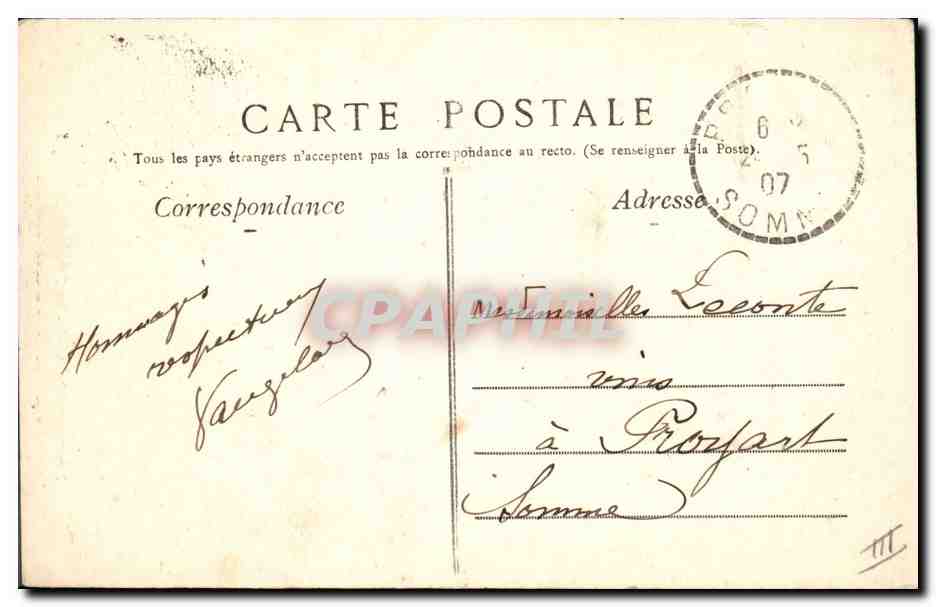 CARTE POSTALE
Tous les pays étrangers n'acceptent pas la correspondance au recto. (Se renseigner à la Poste).
Correspondance
Adresse
6
07
SOMM
CPAPHIL
Hommages
respectueux
Mesdemoiselles Leconte
vins
à Proyart
(Somme)
III